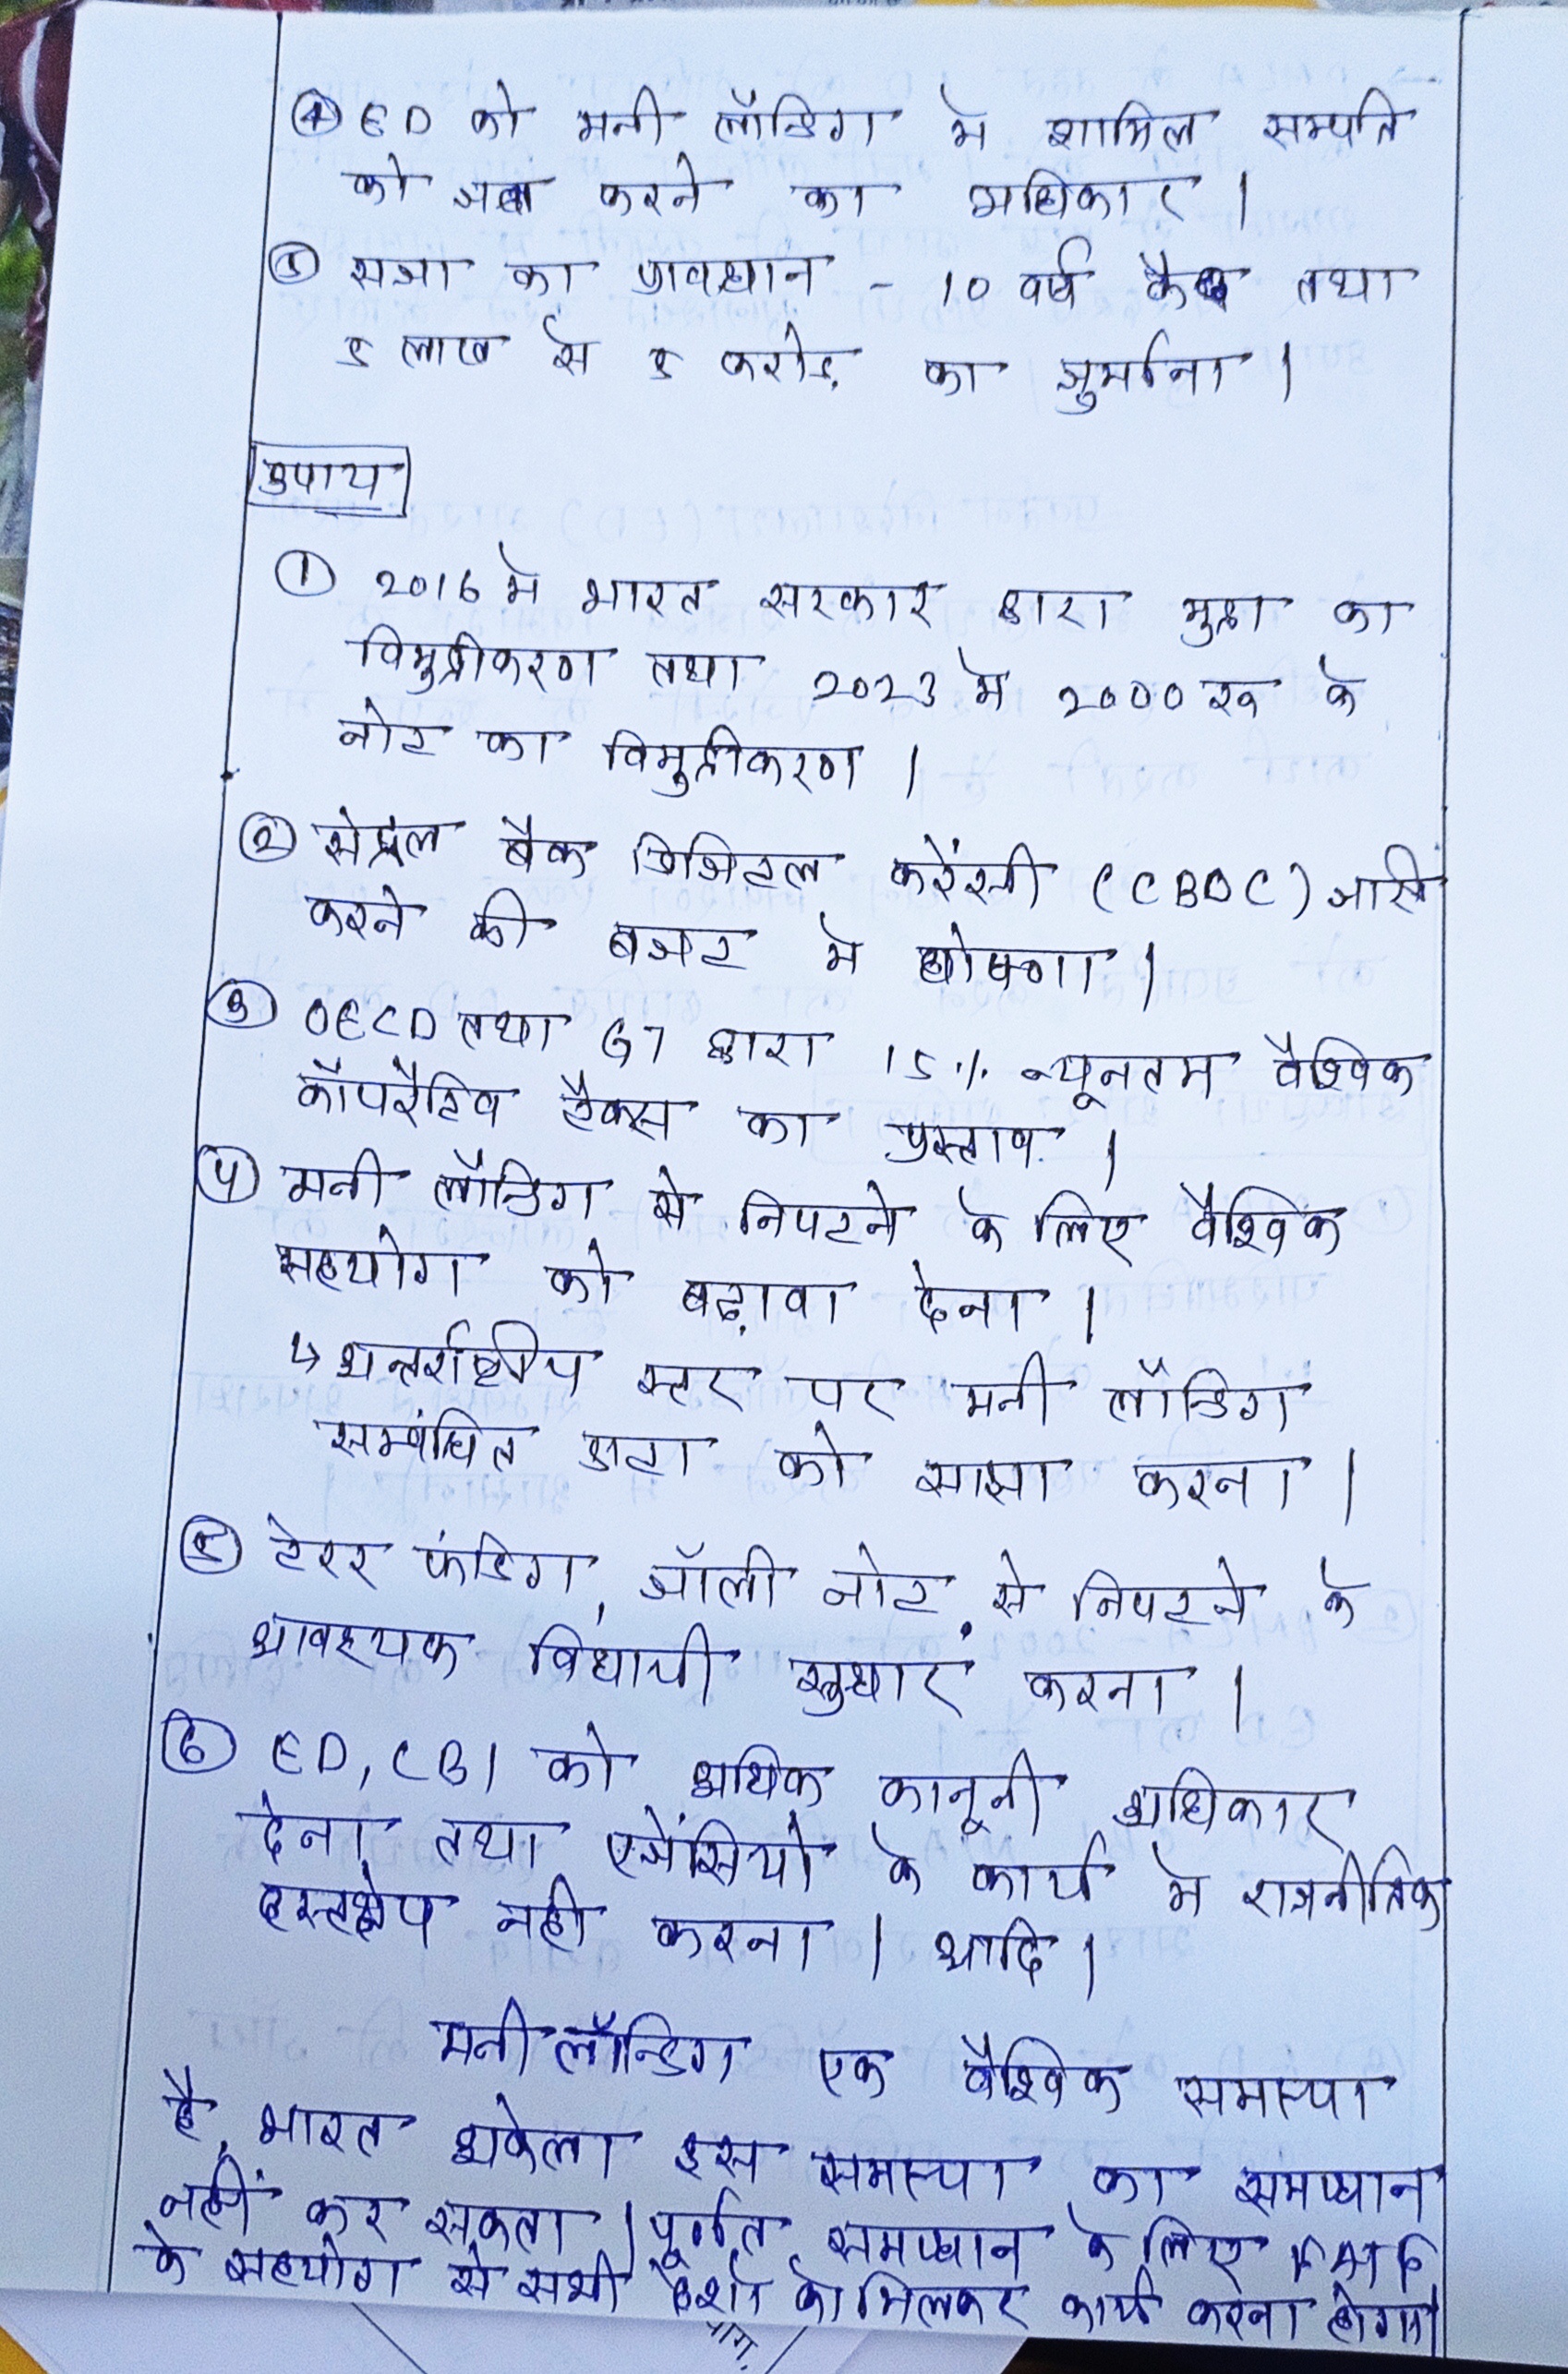 ④ ED को मनी लॉन्डिग मे शामिल सम्पति
को जब्त करने का अधिकार ।
⑤ सजा का प्रावधान - 10 वर्ष कैद तथा
5 लाख से 5 करोड़ का जुर्माना ।
उपाय
① 2016 मे भारत सरकार द्वारा मुद्रा का
विमुद्रीकरण तथा 2023 मे 2000 रू के
नोट का विमुद्रीकरण ।
② सेंट्रल बैक डिजिटल करेंसी (CBDC) जारी
करने की बजट मे घोषणा ।
③ OECD तथा G7 द्वारा 15% न्यूनतम वैश्विक
कॉपरैटिव टैक्स का प्रस्ताव ।
④ मनी लॉन्डिग से निपटने के लिए वैश्विक
सहयोग को बढ़ावा देना ।
↳ अन्तर्राष्ट्रीय स्तर पर मनी लॉन्डिग
सम्बंधित डाटा को साझा करना ।
⑤ टेरर फंडिग, जॉली नोट से निपटने के
आवश्यक विधायी सुधार करना ।
⑥ ED, CBI को अधिक कानूनी अधिकार
देना तथा एजेंसियो के कार्य मे राजनीतिक
हस्तक्षेप नही करना । आदि ।
मनी लॉन्डिग एक वैश्विक समस्या
है, भारत अकेला इस समस्या का समाधान
नहीं कर सकता । पूर्णत समाधान के लिए
के सहयोग से सभी देशो को मिलकर कार्य करना होगा।